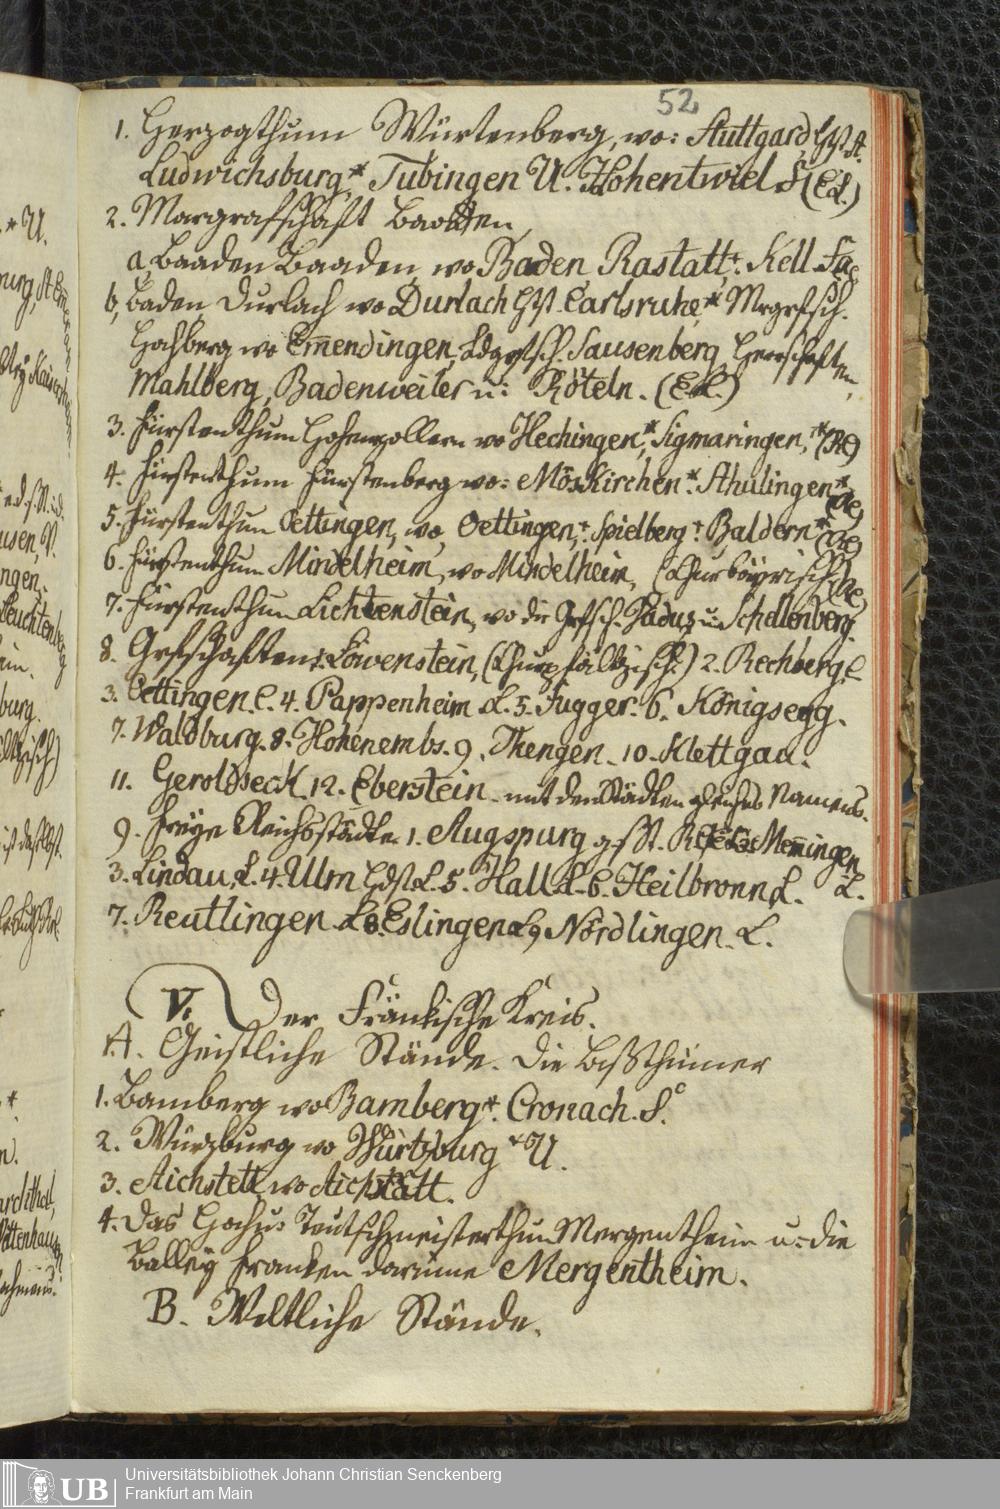 52
1. Herzogthum Würtenberg, wo: Stuttgard, Hst. A.
Ludwichsburg,* Tubingen U. Hohentwiel. F. (E.L.)
2. Margrafschaft Baaden,
a, Baaden Baaden, wo Baden Rastatt*. Kell
b, Baden Durlach wo Durlach Hst. Carlsruhe,* Mrgrfsch.
Hochberg wo Em̅endingen, Ldgrfsch. Sausenberg, Herrschaften,
Mahlberg, Badenweiler u: Röteln. (E.L.)
3. Fürstenthum Hohenzollern wo Hechingen,* Sigmaringen,* (Re)
4. Fürstenthum Fürstenberg wo: Möskirchen.* Sthulingen* (Re)
5. Fürstenthum Oettingen, wo, Oettingen,* Spielberg* Baldern* (Re)
6. Fürstenthum Mindelheim, wo Mindelheim, (Churbäyrisch) (Re)
7. Fürstenthum Lichtenstein, wo die Grfsch. Vaduz u: Schellenberg.
8. Grfschaften: 1. Löwenstein, (Churpfältzisch.) 2. Rechberg. C
3. Oettingen. C. 4. Pappenheim L. 5. Fugger. 6. Königsegg.
7. Waldburg. 8. Hohenembs. 9. Thengen. 10. Klettgau.
11. Geroldseck. 12. Eberstein. mit den Städten gleiches Namens.
9. Freye Reichsstädte 1. Augspurg gr. St. 2. Mem̅ingen L.
3. Lindau, L. 4. Ulm Hdst. L. 5. Hall L. 6. Heilbronn L.
7. Reutlingen L. 8. Eslingen L. 9, Nördlingen. L.
V. Der Fränkische Kreis.
A. Geistliche Stände. Die Bissthümer
1. Bamberg wo Bamberg*. Cronach. F.
2. Würzburg wo Würtzburg * U.
3. Aichstett wo Aichstätt.
4. Das Hoch u: Teutschmeisterthum Mergentheim u: die
Balley Franken darinne Mergentheim.
B. Weltliche Stände.
UB
Universitätsbibliothek Johann Christian Senckenberg
Frankfurt am Main